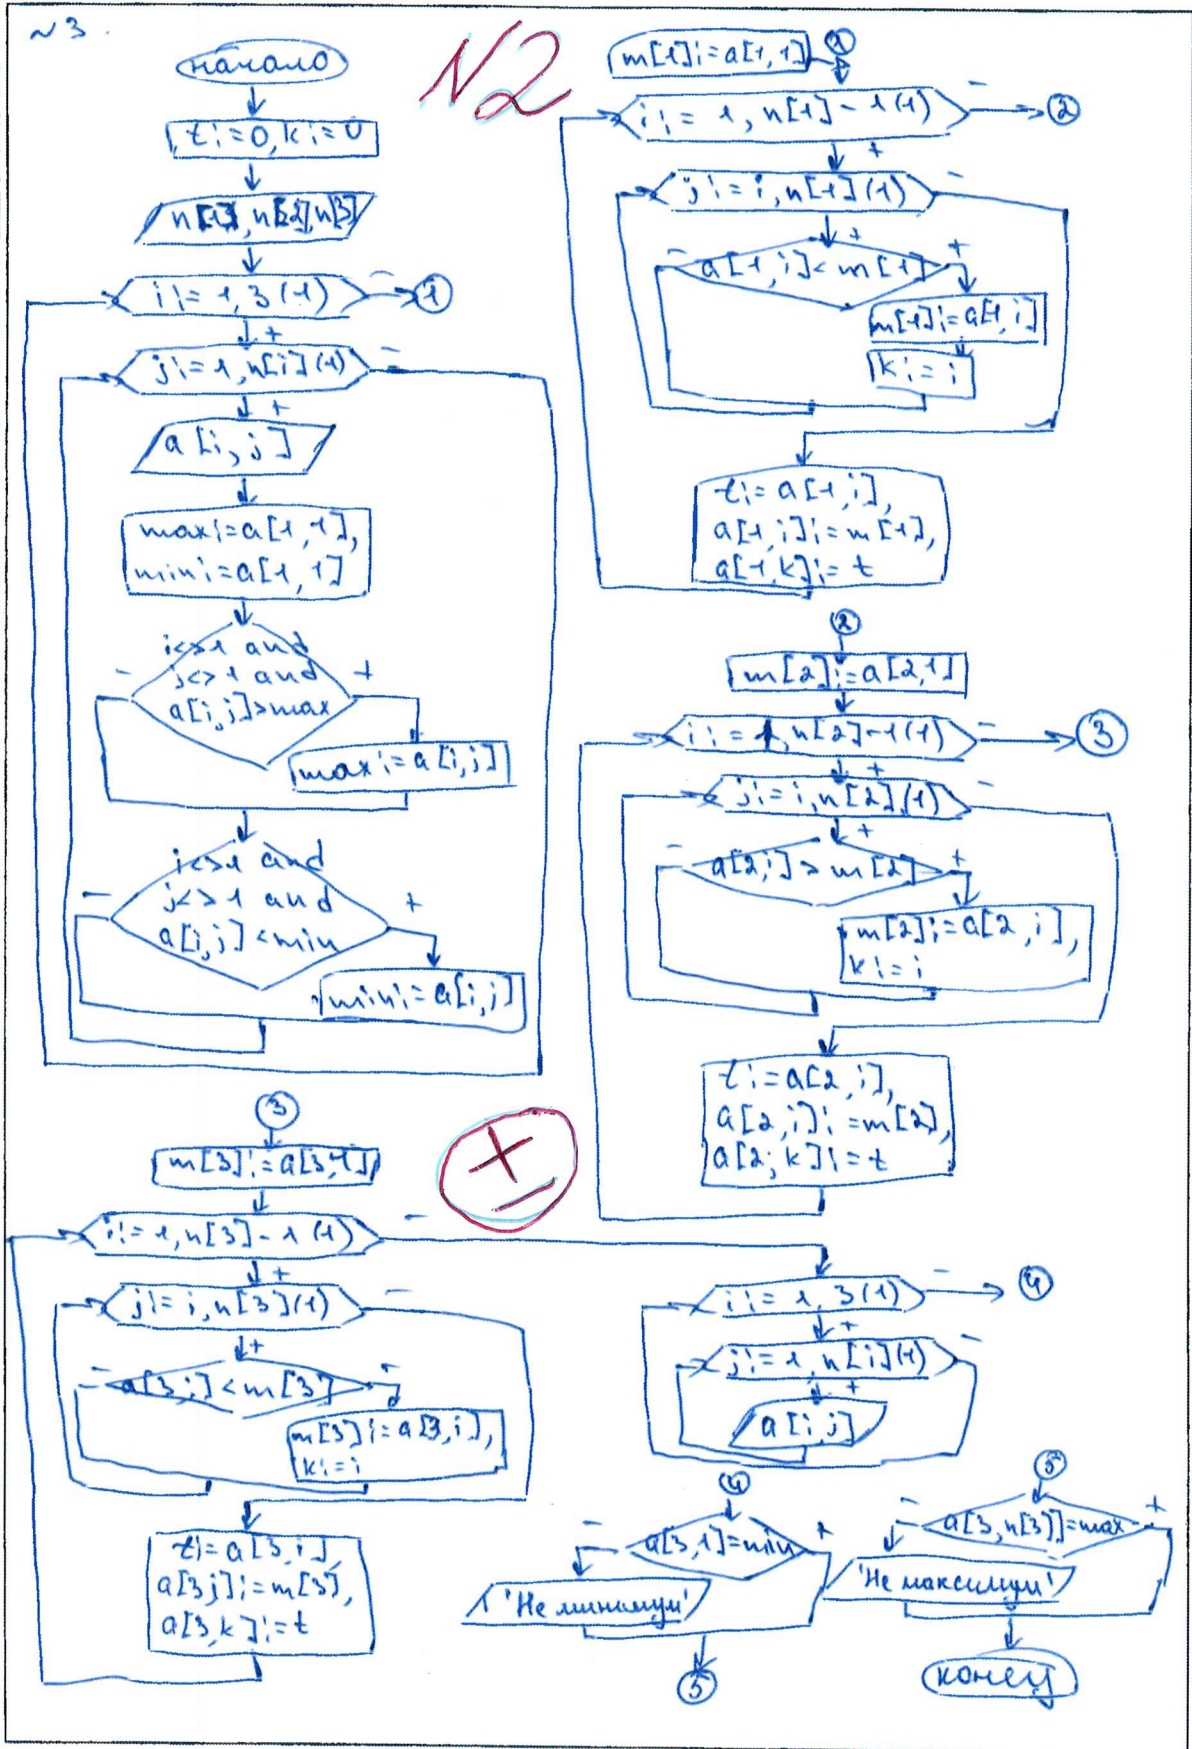 №3.
№2
начало
t:=0, k:=0
n[1], n[2], n[3]
i:=1,3(1)
-
1
+
j:=1,n[i](1)
-
+
a[i,j]
max:=a[1,1],
min:=a[1,1]
i<>1 and
j<>1 and
a[i,j]>max
-
+
max:=a[i,j]
i<>1 and
j<>1 and
a[i,j]<min
-
+
min:=a[i,j]
1
m[1]:=a[1,1]
i:=1,n[1]-1(1)
-
2
+
j:=i,n[1](1)
-
+
a[1,i]<m[1]
-
+
m[1]:=a[1,i]
k:=i
t:=a[1,i],
a[1,i]:=m[1],
a[1,k]:=t
2
m[2]:=a[2,1]
i:=1,n[2]-1(1)
-
3
+
j:=i,n[2](1)
-
+
a[2,i]>m[2]
-
+
m[2]:=a[2,i],
k:=i
t:=a[2,i],
a[2,i]:=m[2],
a[2,k]:=t
3
m[3]:=a[3,1]
±
i:=1,n[3]-1(1)
-
+
j:=i,n[3](1)
-
+
a[3,j]<m[3]
-
m[3]:=a[3,i],
k:=i
t:=a[3,i],
a[3j]:=m[3],
a[3,k]:=t
i:=1,3(1)
-
4
+
j:=1,n[i](1)
-
+
a[i,j]
4
a[3,1]=min
-
+
'Не минимум'
5
5
a[3,n[3]]=max
-
+
'Не максимум'
конец